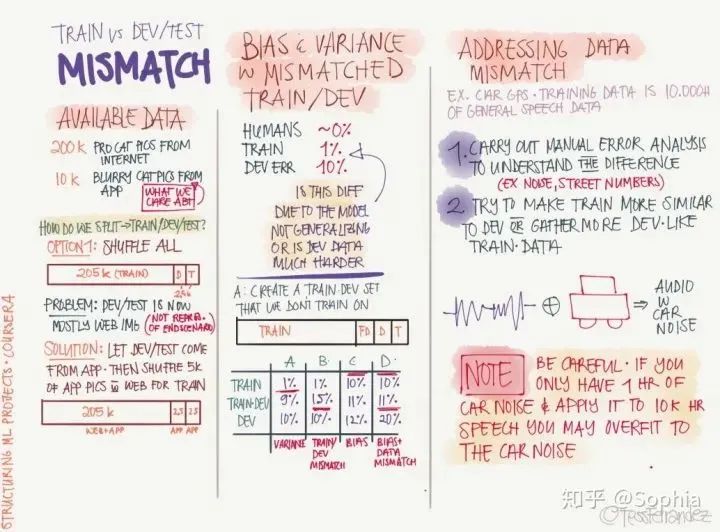 TRAIN vs DEV/TEST
MISMATCH
AVAILABLE DATA
200k PRO CAT PICS FROM
INTERNET
10k BLURRY CAT PICS FROM
APP
WHAT WE
CARE ABT
HOW DO WE SPLIT → TRAIN/DEV/TEST?
OPTION 1: SHUFFLE ALL
205k (TRAIN) D T
PROBLEM: DEV/TEST IS NOW
MOSTLY WEB IMG (NOT REPR.
OF END SCENARIO)
SOLUTION: LET DEV/TEST COME
FROM APP. THEN SHUFFLE 5K
OF APP PICS W WEB FOR TRAIN
205k 2.5 2.5
WEB+APP APP APP
STRUCTURING ML PROJECTS · COURSERA
BIAS & VARIANCE
W MISMATCHED
TRAIN/DEV
HUMANS ~0%
TRAIN 1%
DEV ERR 10%
IS THIS DIFF
DUE TO THE MODEL
NOT GENERALIZING
OR IS DEV DATA
MUCH HARDER
A: CREATE A TRAIN-DEV SET
THAT WE DON'T TRAIN ON
TRAIN TD D T
A B C D
TRAIN 1% 1% 10% 10%
TRAIN-DEV 9% 1.5% 11% 11%
DEV 10% 10% 12% 20%
VARIANCE TRAIN/ BIAS BIAS+
DEV DATA
MISMATCH MISMATCH
ADDRESSING DATA
MISMATCH
EX. CAR GPS · TRAINING DATA IS 10.000H
OF GENERAL SPEECH DATA
1. CARRY OUT MANUAL ERROR ANALYSIS
TO UNDERSTAND THE DIFFERENCE
(EX NOISE, STREET NUMBERS)
2. TRY TO MAKE TRAIN MORE SIMILAR
TO DEV OR GATHER MORE DEV-LIKE
TRAIN-DATA
⊕ ⇒ AUDIO
W
CAR
NOISE
NOTE BE CAREFUL · IF YOU
ONLY HAVE 1 HR OF
CAR NOISE & APPLY IT TO 10K HR
SPEECH YOU MAY OVERFIT TO
THE CAR NOISE
知乎 @Sophia
@TessFerrandez